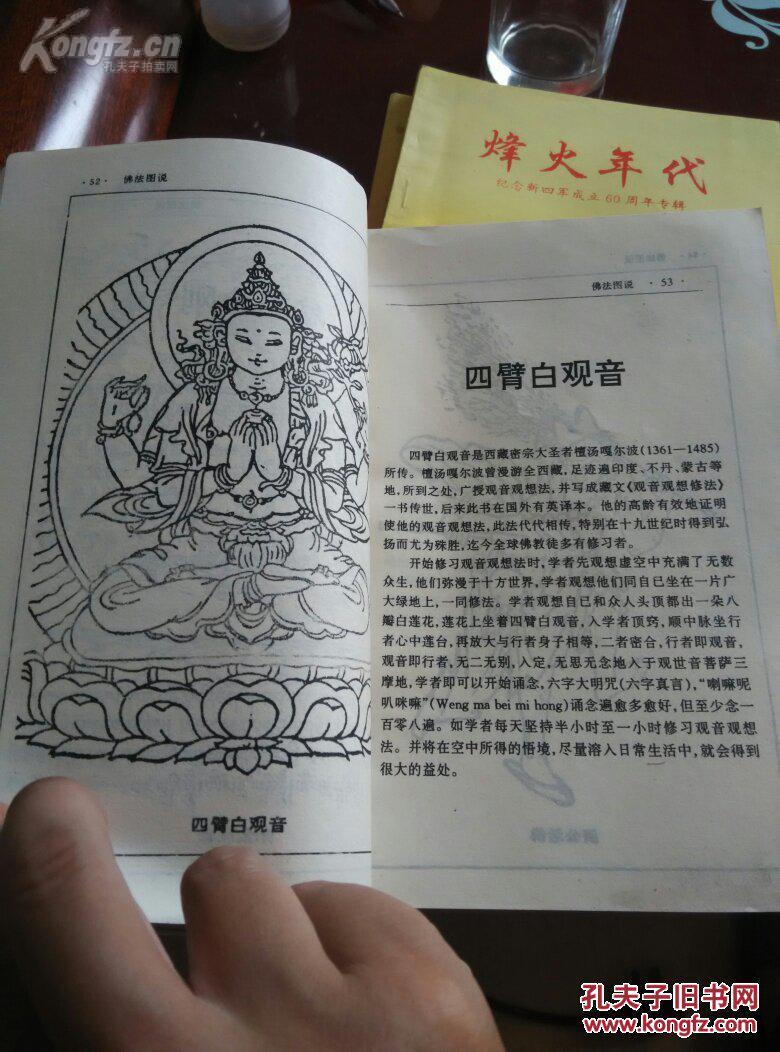 Kongfz.cn
孔夫子拍卖网
烽火年代
纪念新四军成立60周年专辑
·52· 佛法图说
四臂白观音
佛法图说 ·53·
四臂白观音
四臂白观音是西藏密宗大圣者檀汤嘎尔波(1361—1485)
所传。檀汤嘎尔波曾漫游全西藏,足迹遍印度、不丹、蒙古等
地,所到之处,广授观音观想法,并写成藏文《观音观想修法》
一书传世,后来此书在国外有英译本。他的高龄有效地证明
使他的观音观想法,此法代代相传,特别在十九世纪时得到弘
扬而尤为殊胜,迄今全球佛教徒多有修习者。
开始修习观音观想法时,学者先观想虚空中充满了无数
众生,他们弥漫于十方世界,学者观想他们同自已坐在一片广
大绿地上,一同修法。学者观想自已和众人头顶都出一朵八
瓣白莲花,莲花上坐着四臂白观音,入学者顶窍,顺中脉坐行
者心中莲台,再放大与行者身子相等,二者密合,行者即观音,
观音即行者,无二无别,入定,无思无念地入于观世音菩萨三
摩地,学者即可以开始诵念,六字大明咒(六字真言),“喇嘛呢
叭咪嘛”(Weng ma bei mi hong)诵念遍愈多愈好,但至少念一
百零八遍。如学者每天坚持半小时至一小时修习观音观想
法。并将在空中所得的悟境,尽量溶入日常生活中,就会得到
很大的益处。
孔夫子旧书网
www.kongfz.com